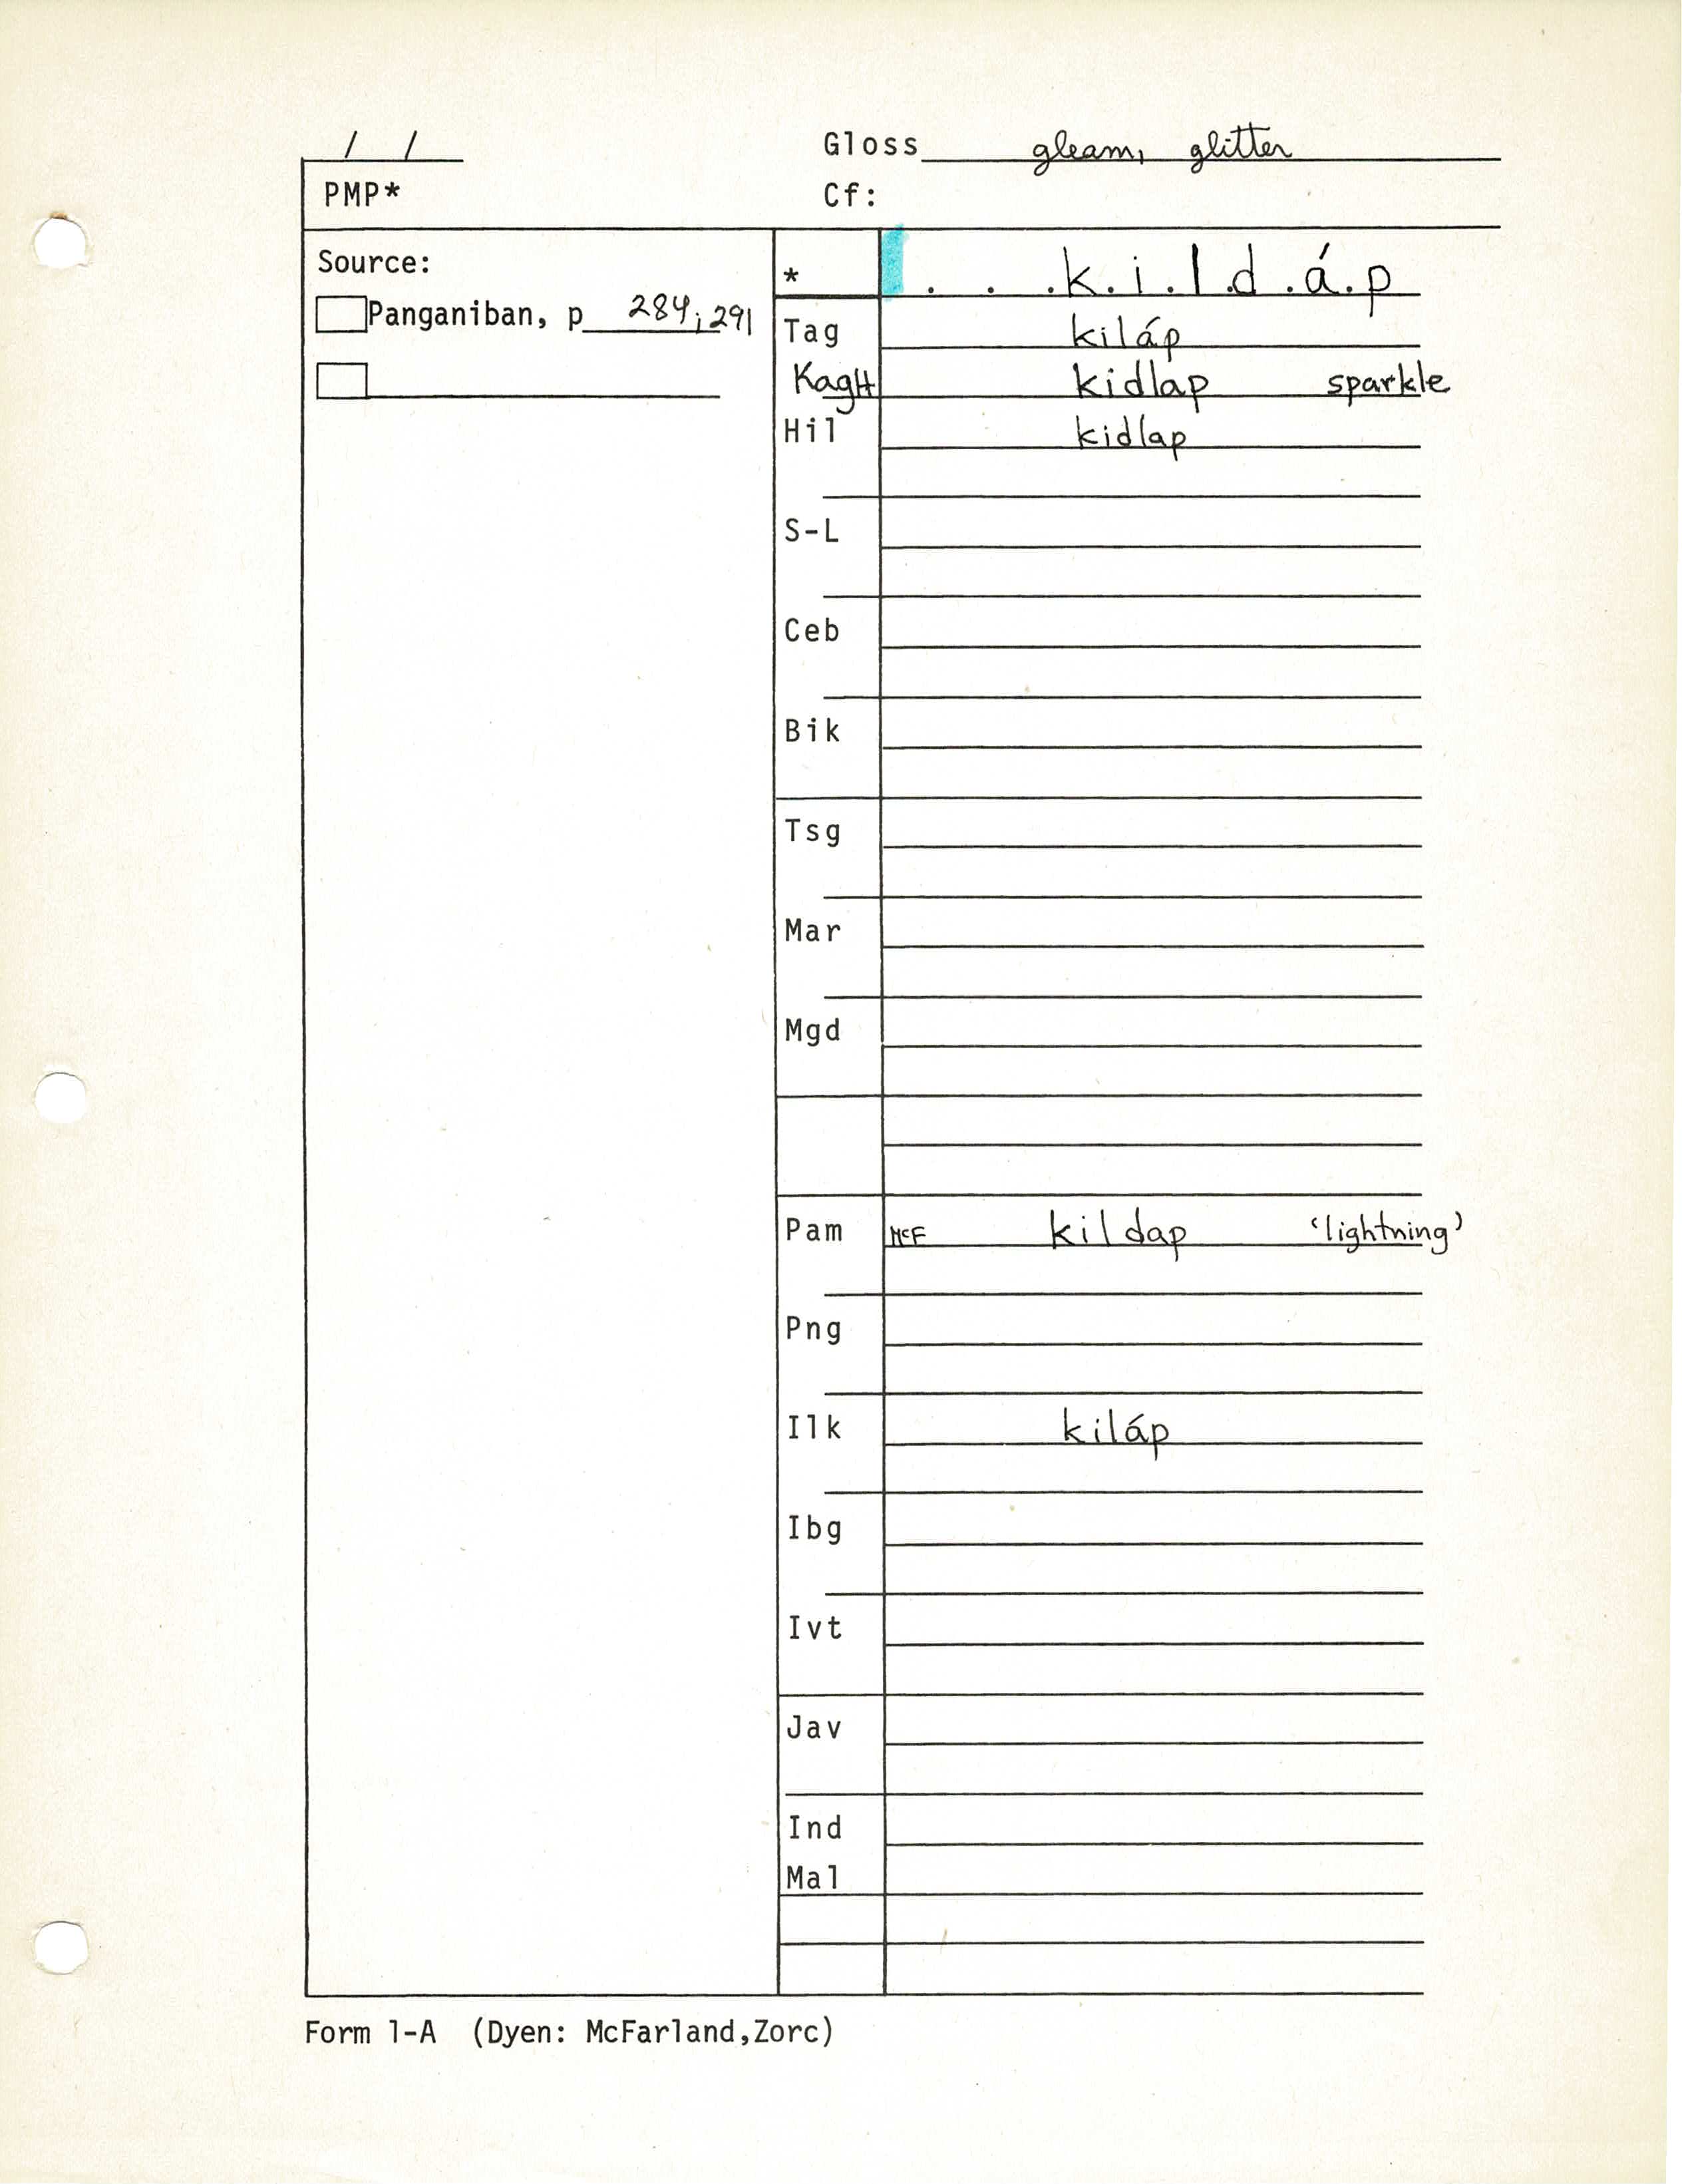 / /
Gloss gleam, glitter
PMP*
Cf:
Source:
Panganiban, p 284; 291
* . . .k.i.l.d.á.p
Tag kiláp
KagH kidlap sparkle
Hil kidlap
S-L
Ceb
Bik
Tsg
Mar
Mgd
Pam McF kildap ‘lightning’
Png
Ilk kiláp
Ibg
Ivt
Jav
Ind
Mal
Form 1-A (Dyen: McFarland,Zorc)